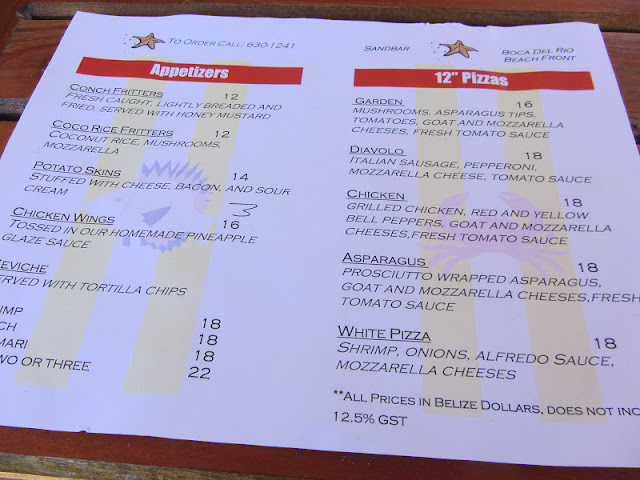 To Order Call: 630-1241
Appetizers
Conch Fritters 12
Fresh caught, lightly breaded and
fried, served with honey mustard
Coco Rice Fritters 12
Coconut rice, mushrooms,
mozzarella
Potato Skins 14
Stuffed with cheese, bacon, and sour
cream
3
Chicken Wings 16
Tossed in our homemade pineapple
glaze sauce
eviche
erved with tortilla chips
imp 18
ch 18
mari 18
wo or three 22
Sandbar
Boca Del Rio
Beach Front
12" Pizzas
Garden 16
Mushrooms, asparagus tips,
tomatoes, goat and mozzarella
cheeses, fresh tomato sauce
Diavolo 18
Italian sausage, pepperoni,
mozzarella cheese, tomato sauce
Chicken 18
Grilled chicken, red and yellow
bell peppers, goat and mozzarella
cheeses,fresh tomato sauce
Asparagus 18
Prosciutto wrapped asparagus,
goat and mozzarella cheeses,fresh
tomato sauce
White Pizza 18
Shrimp, onions, alfredo sauce,
mozzarella cheeses
**All Prices in Belize Dollars, does not inc
12.5% GST